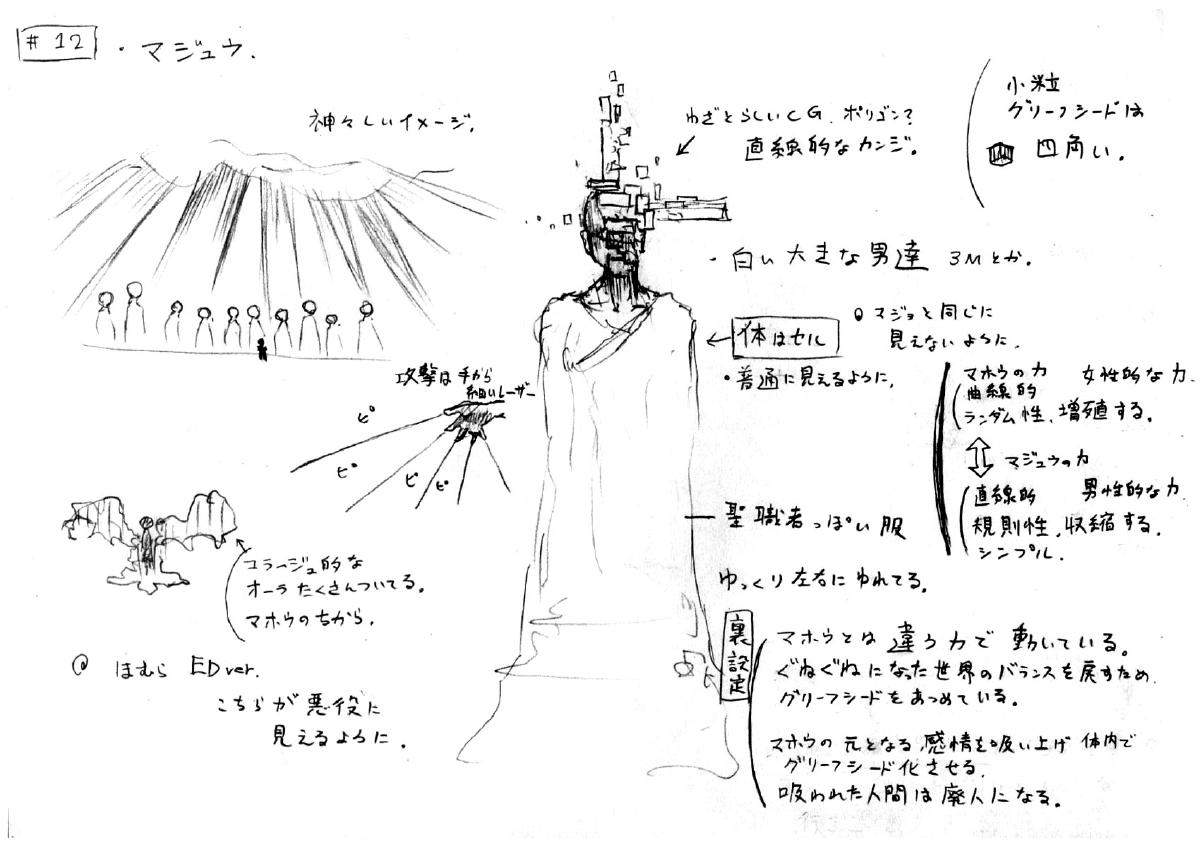 #12
・マジュウ.
神々しいイメージ.
わざとらしいCG. ポリゴン?
直線的なカンジ.
小粒
グリーフシードは
四角い.
・白い大きな男達 3Mとか.
体はセル
・普通に見えるように.
マジョと同じに
見えないように.
攻撃は手から
細いレーザー
ピ
ピ
ピ
ピ
マホウの力 女性的な力.
曲線的
ランダム性、増殖する。
マジュウの力
直線的 男性的な力
規則性、収縮する.
シンプル.
聖職者っぽい服
ゆっくり左右にゆれてる.
コラージュ的な
オーラたくさんついてる。
マホウのちから.
ほむら EDver.
こちらが悪役に
見えるように.
裏設定
マホウとは違う力で動いている。
ぐねぐねになった世界のバランスを戻すため.
グリーフシードをあつめている。
マホウの元となる感情を吸い上げ体内で
グリーフシード化させる.
吸われた人間は廃人になる。